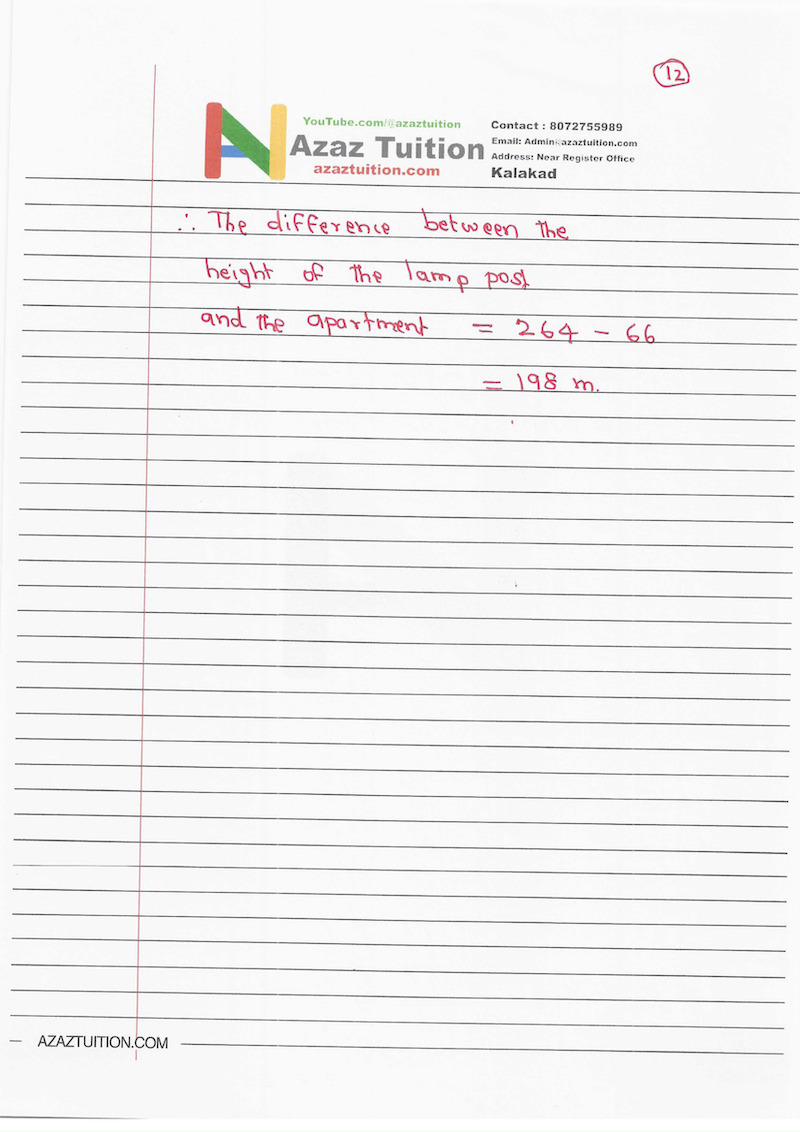 12
YouTube.com/@azaztuition
Azaz Tuition
azaztuition.com
Contact : 8072755989
Email: Admin@azaztuition.com
Address: Near Register Office
Kalakad
∴ The difference between the
height of the lamp post
and the apartment = 264 - 66
= 198 m.
AZAZTUITION.COM